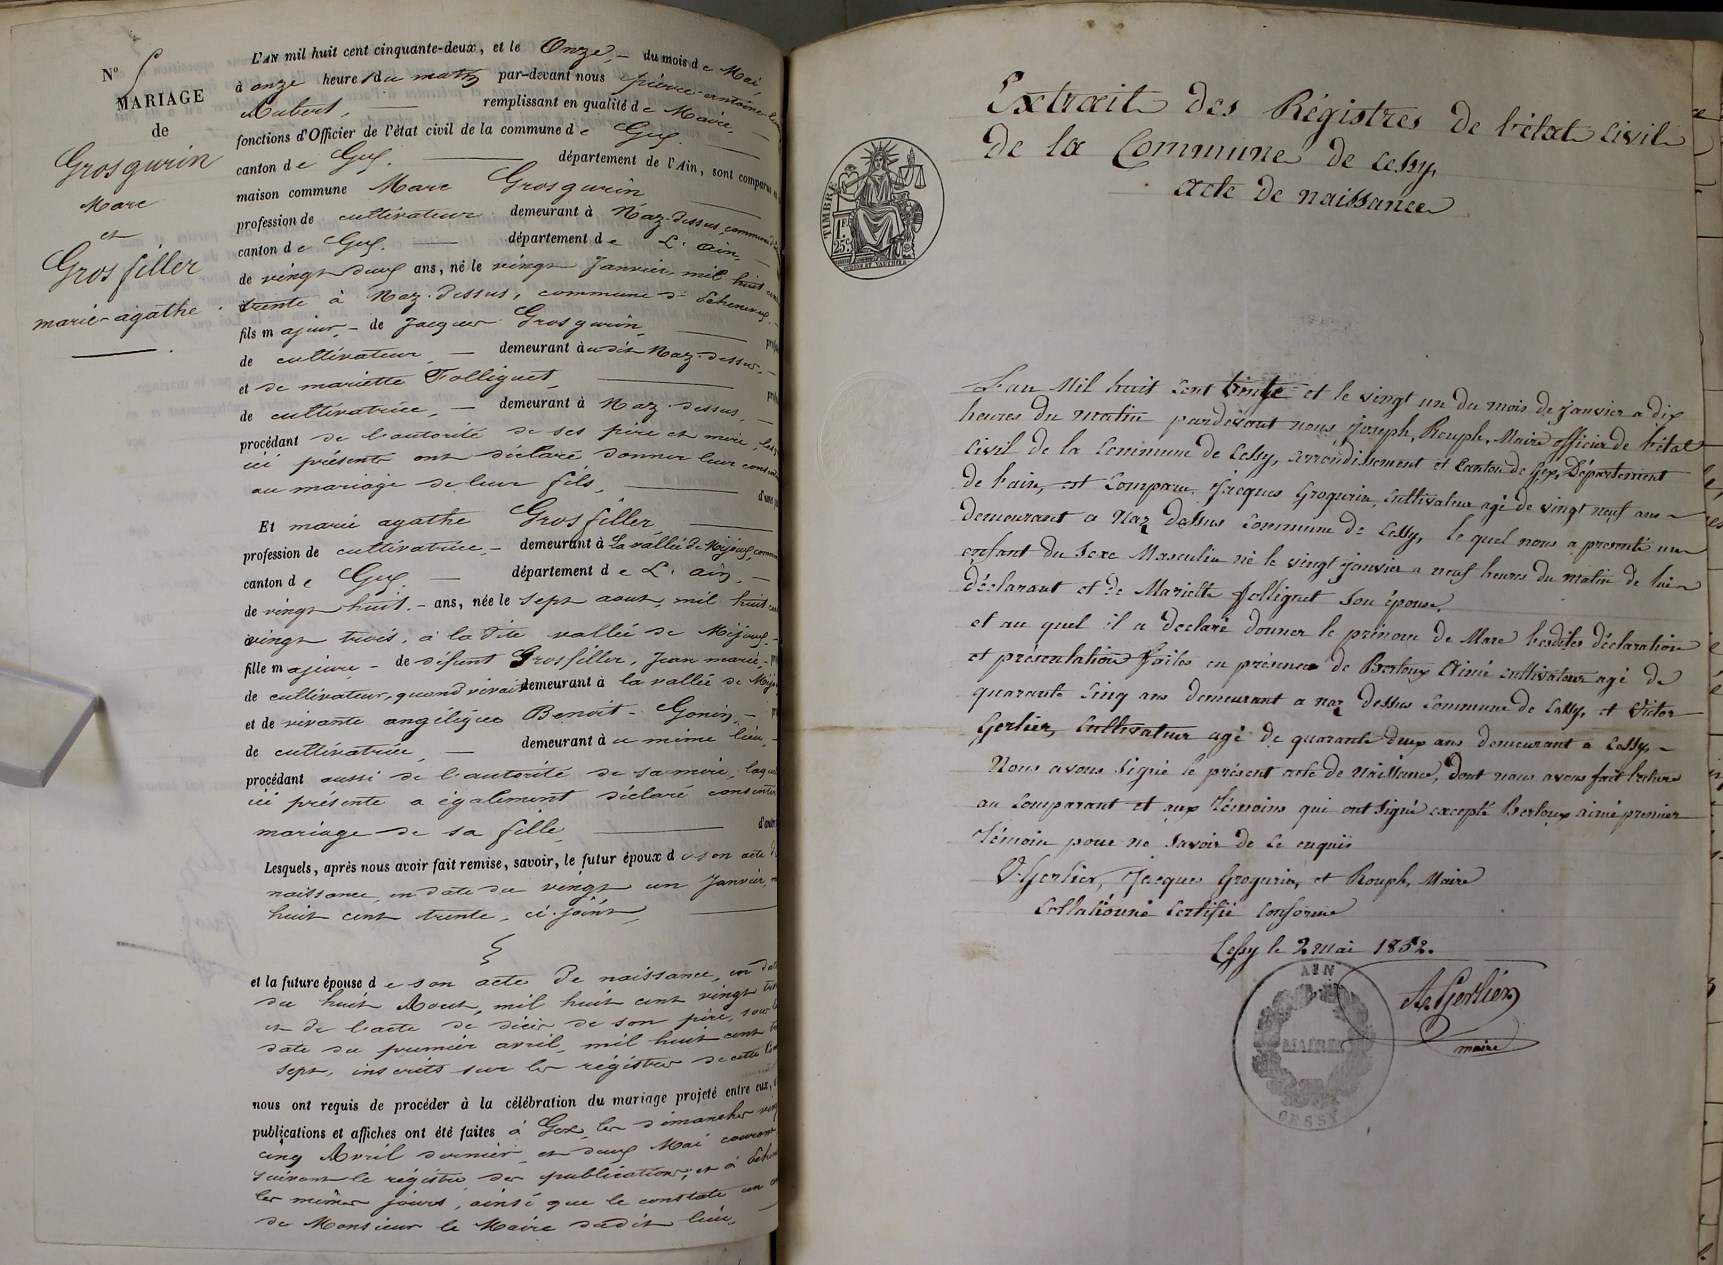 N° 5
MARIAGE
de
Grosgurin
Marc
et
Grosfiller
marie-agathe
L'AN mil huit cent cinquante-deux, et le Onze, du mois de Mai,
à onze heures du matin par-devant nous pierre-antoine
Aubert, remplissant en qualité de Maire,
fonctions d'Officier de l'état civil de la commune de Gex.
canton de Gex. département de l'Ain, sont comparus
maison commune Marc Grosgurin
profession de cultivateur demeurant à Naz-dessus, commune
canton de Gex. département de L'ain,
de vingt deux ans, né le vingt Janvier, mil huit cent
trente à Naz-dessus, commune d'Echenevex,
fils majeur, de Jacques Grosgurin,
de cultivateur, demeurant audit Naz-dessus,
et de mariette Folliguet,
de cultivatrice, demeurant à Naz-dessus,
procédant de l'autorité de ses père et mère,
ici présents ont déclaré donner leur
au mariage de leur fils,
Et marie agathe Grosfiller,
profession de cultivatrice, demeurant à La vallée de Mijoux,
canton de Gex. département de L'ain,
de vingt huit ans, née le sept aout, mil huit cent
vingt trois, à la dite vallée de Mijoux,
fille majeure de défunt Grosfiller, Jean marie,
de cultivateur, quand vivait demeurant à la vallée de
et de vivante angélique Benoit-Gonin,
de cultivatrice, demeurant au même lieu,
procédant aussi de l'autorité de sa mère,
ici présente a également déclaré consentir
mariage de sa fille
Lesquels, après nous avoir fait remise, savoir, le futur époux de son acte de
naissance, en date du vingt un Janvier,
huit cent trente, ci-joint,
et la future épouse de son acte de naissance, en date
du huit Aout, mil huit cent vingt
et de l'acte de décès de son père, sous la
date du premier avril, mil huit cent
sept, inscrits sur les régistres de cette
nous ont requis de procéder à la célébration du mariage projeté entre eux,
publications et affiches ont été faites à Gex, les dimanches
cinq Avril dernier et deux Mai courant
suivant le régistre des publications; et à
les mêmes jours, ainsi que le constate un
de Monsieur le Maire dudit lieu,
Extrait des Régistres de l'état Civil
de la Commune de Cessy,
acte de naissance
TIMBRE
1F.
25c.
L'an Mil huit Cent trente et le vingt un du mois de janvier a dix
heures du matin pardevant nous, joseph, Rouph, Maire officier de l'état
Civil de la Commune de Cessy, arrondissement et Canton de Gex, Département
de L'ain, est Comparu Jacques Grogurin, Cultivateur agé de vingt neuf ans
demeurant a Naz dessus Commune de Cessy, le quel nous a presenté un
enfant du Sexe Masculin né le vingt janvier a neuf heures du matin de lui
déclarant et de Mariette folliguet Son épouse,
et au quel il a declaré donner le prénom de Marc lesdites déclaration
et présentation faites en présence de Bertoux Aimé cultivateur agé de
quarante Cinq ans demeurant a naz dessus Commune de Cessy, et Victor
Gerlier, Cultivateur agé de quarante deux ans demeurant a Cessy,
Nous avons Signé le présent acte de Naissance, dont nous avons fait lecture
au Comparant et aux Témoins qui ont Signé excepté Bertoux aimé premier
Témoin pour ne Savoir de Ce enquis
V. Gerlier, Jacques Grogurin, et Rouph, Maire
Collationné Certifié Conforme
Cessy le 2 mai 1852.
A. Gerlier
maire
AIN
MAIRIE
CESSY